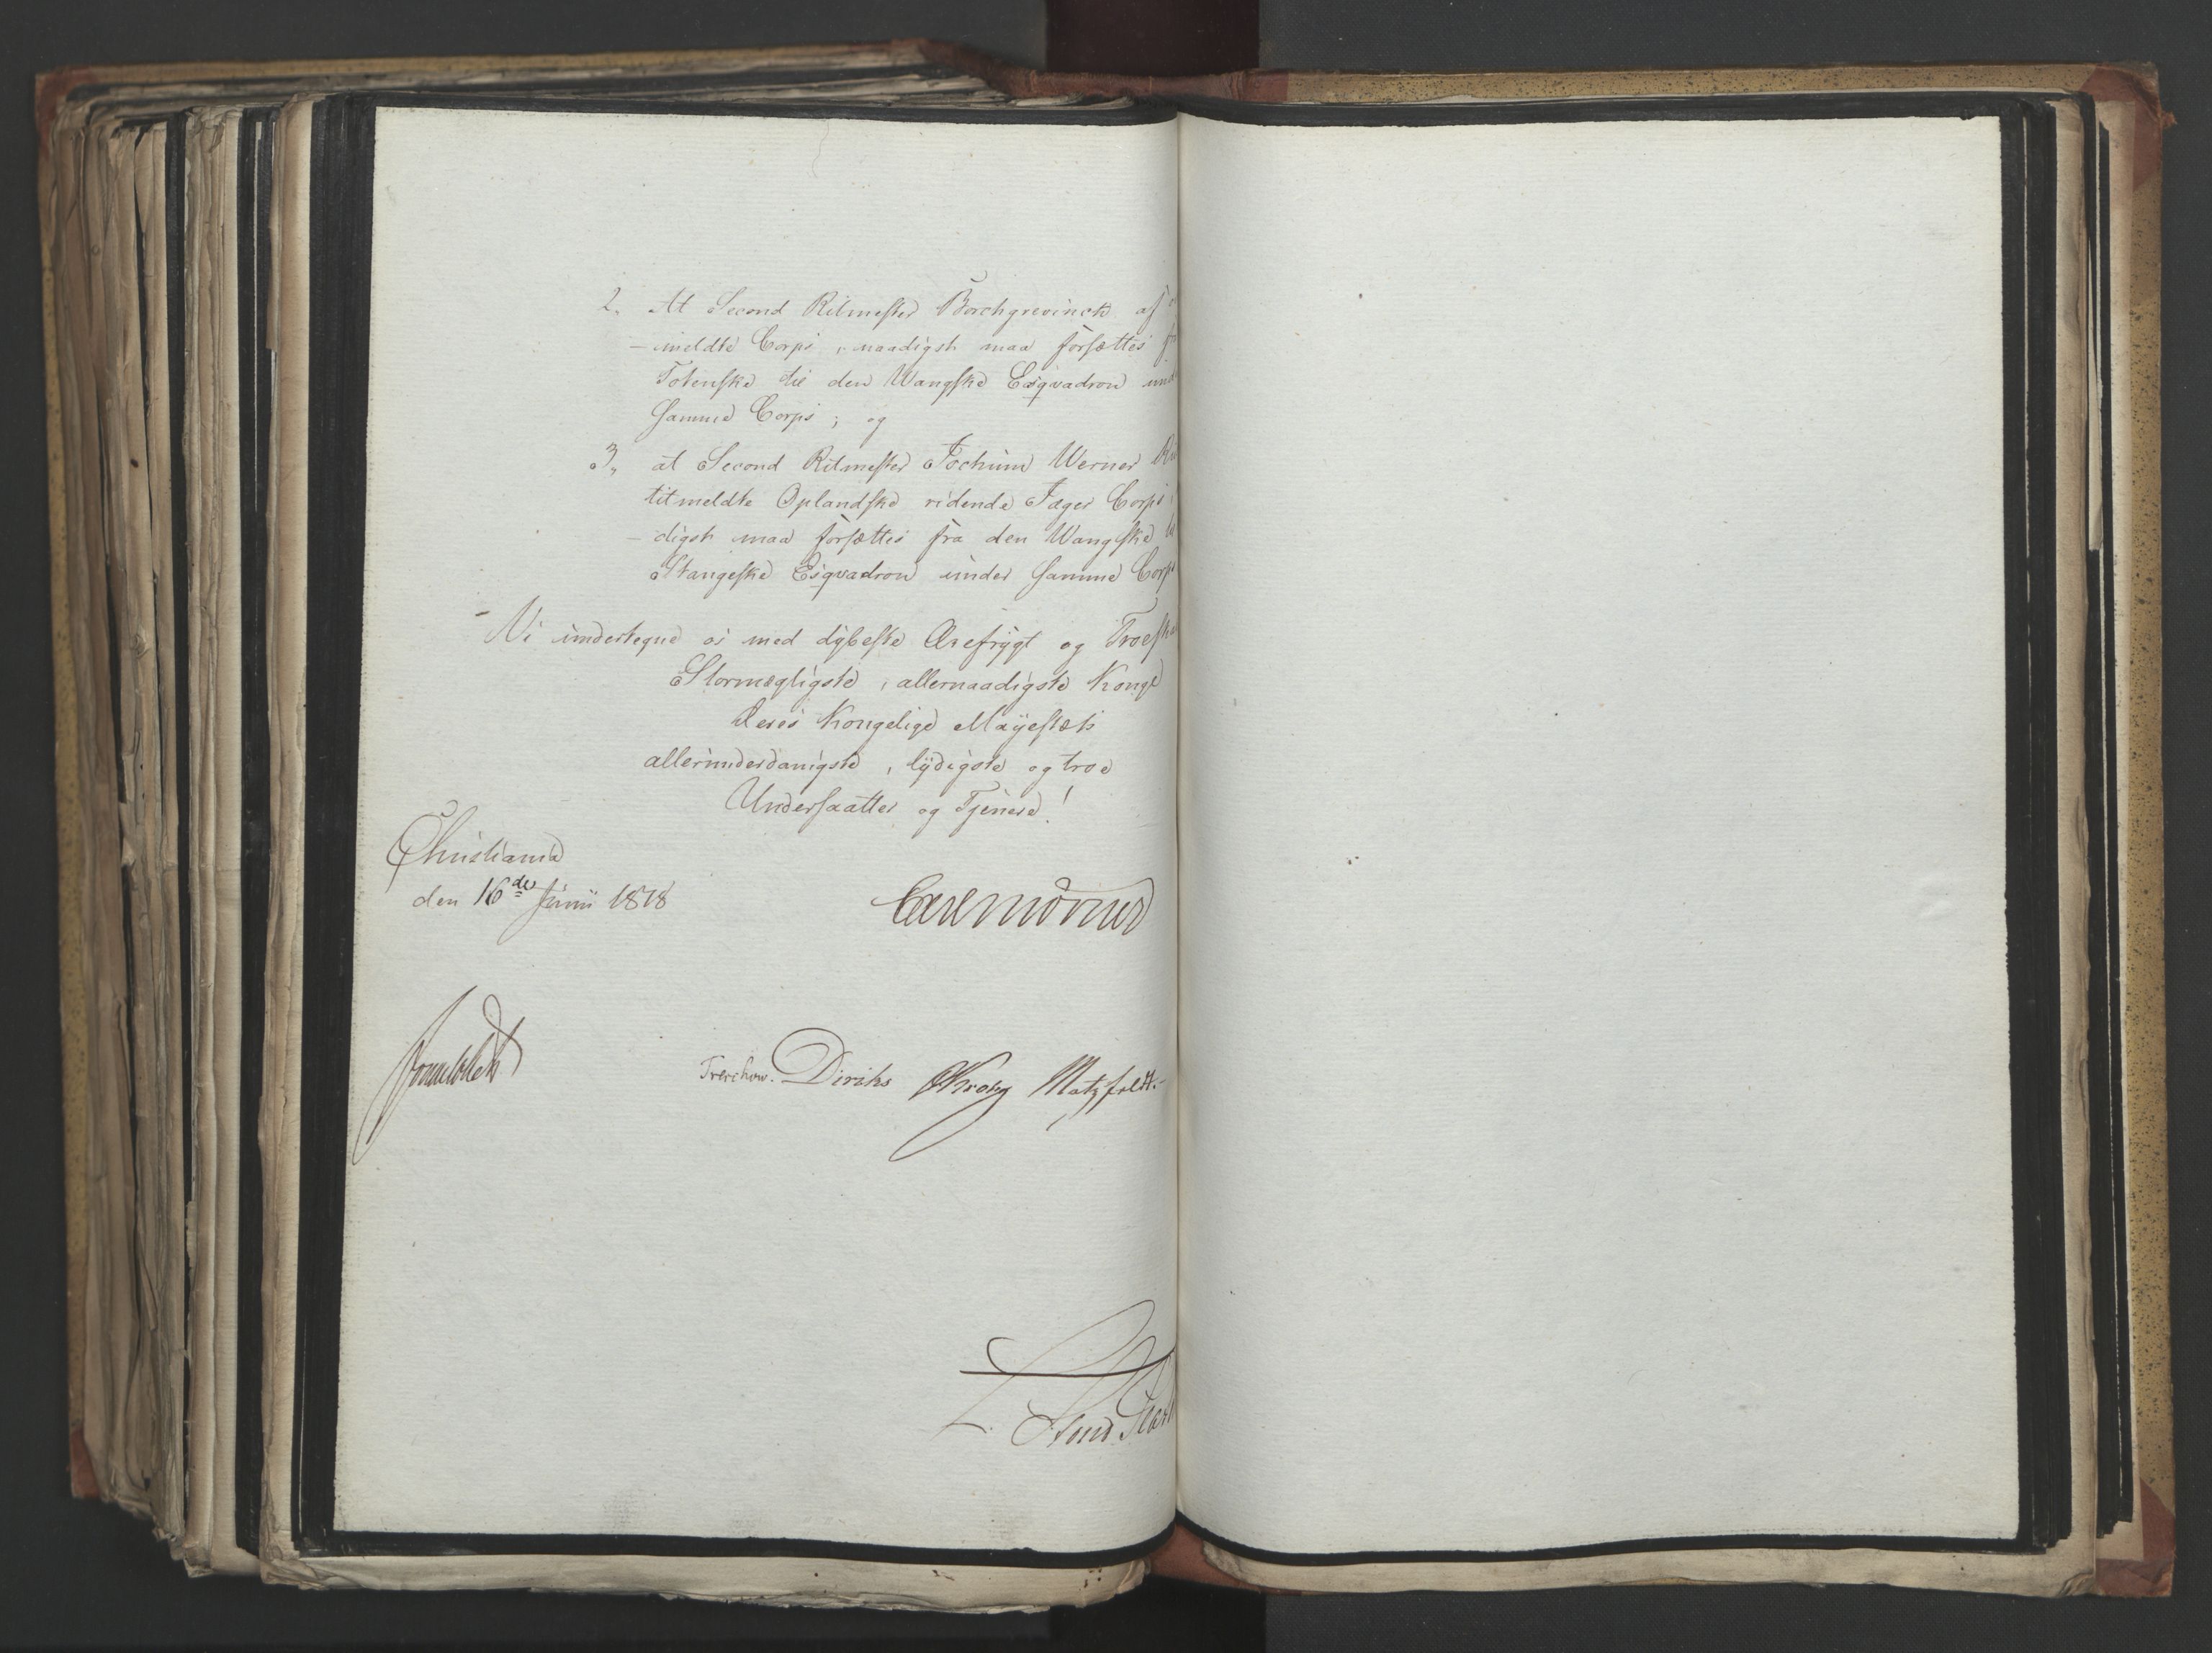 2, At Second Ritmester Borchgrevinck af
– meldte Corps, naadigst maa forsættes
Totenske til den Wangske Esqvadron und
samme Corps; og
3, at Second Ritmester Jochum Werner
titmeldte Oplandske ridende Jæger Corps,
– digst maa forsættes fra den Wangske
Stangeske Esqvadron under samme Corps
Vi undertegne os med dybeste Ærefrygt og Troeska
Stormægtigste, allernaadigste Konge
Deres Kongelige Mayestæts
allerunderdanigste, lydigste og troe
Undersaatter og Tjenere!
Christiania
den 16de Junii 1818
Carl Mörner
Treschow. Diriks Krog Motzfeldt.